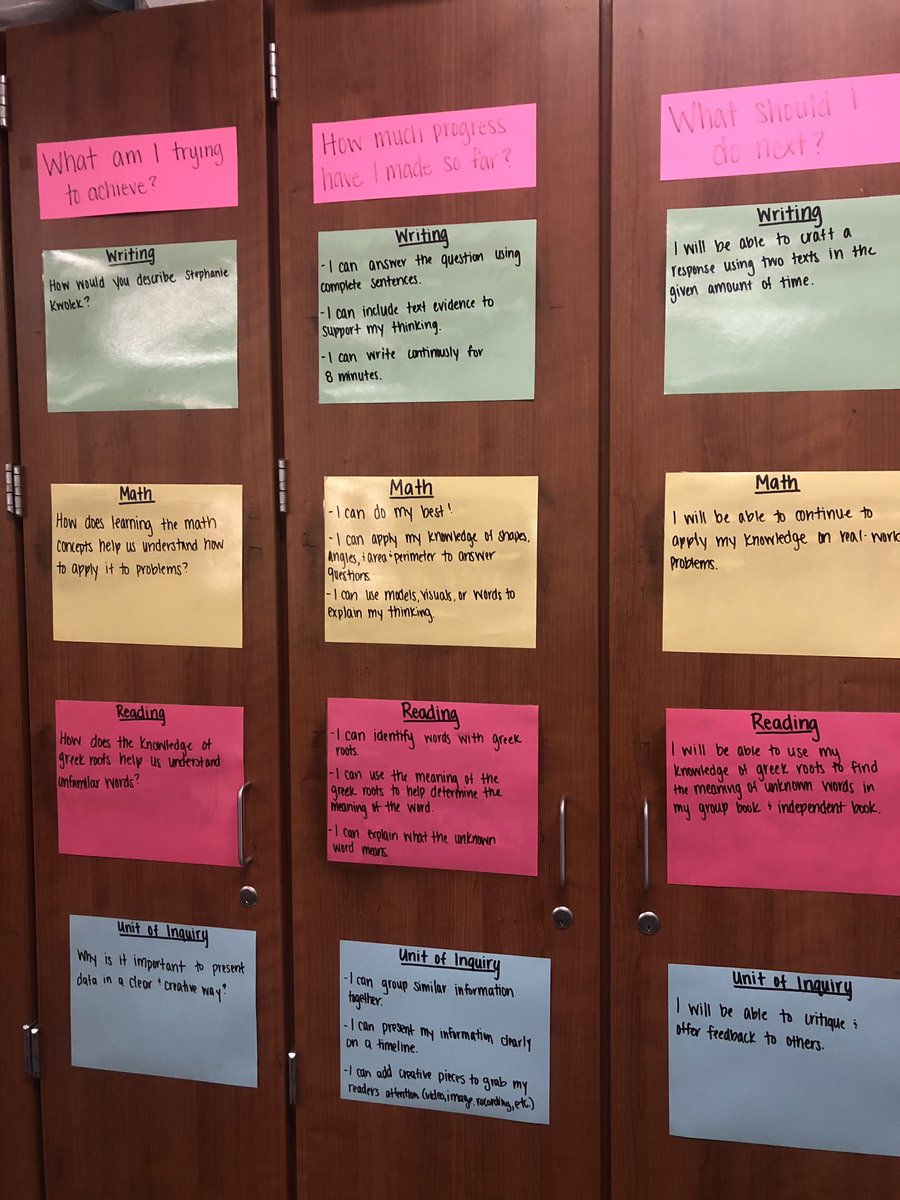 What am I trying
to achieve?
Writing
How would you describe Stephanie
Kwolek?
Math
How does learning the math
concepts help us understand how
to apply it to problems?
Reading
How does the knowledge of
greek roots help us understand
unfamiliar words?
Unit of Inquiry
Why is it important to present
data in a clear & creative way?
How much progress
have I made so far?
Writing
- I can answer the question using
complete sentences.
- I can include text evidence to
support my thinking.
- I can write continously for
8 minutes.
Math
- I can do my best!
- I can apply my knowledge of shapes,
angles, & area & perimeter to answer
questions.
- I can use models, visuals, or words to
explain my thinking.
Reading
- I can identify words with greek
roots.
- I can use the meaning of the
greek roots to help determine the
meaning of the word.
- I can explain what the unknown
word means.
Unit of Inquiry
- I can group similar information
together.
- I can present my information clearly
on a timeline.
- I can add creative pieces to grab my
readers attention (video, image, recording, etc.)
What should I
do next?
Writing
I will be able to craft a
response using two texts in the
given amount of time.
Math
I will be able to continue to
apply my knowledge on real-world
problems.
Reading
I will be able to use my
knowledge of greek roots to find
the meaning of unknown words in
my group book & independent book.
Unit of Inquiry
I will be able to critique &
offer feedback to others.